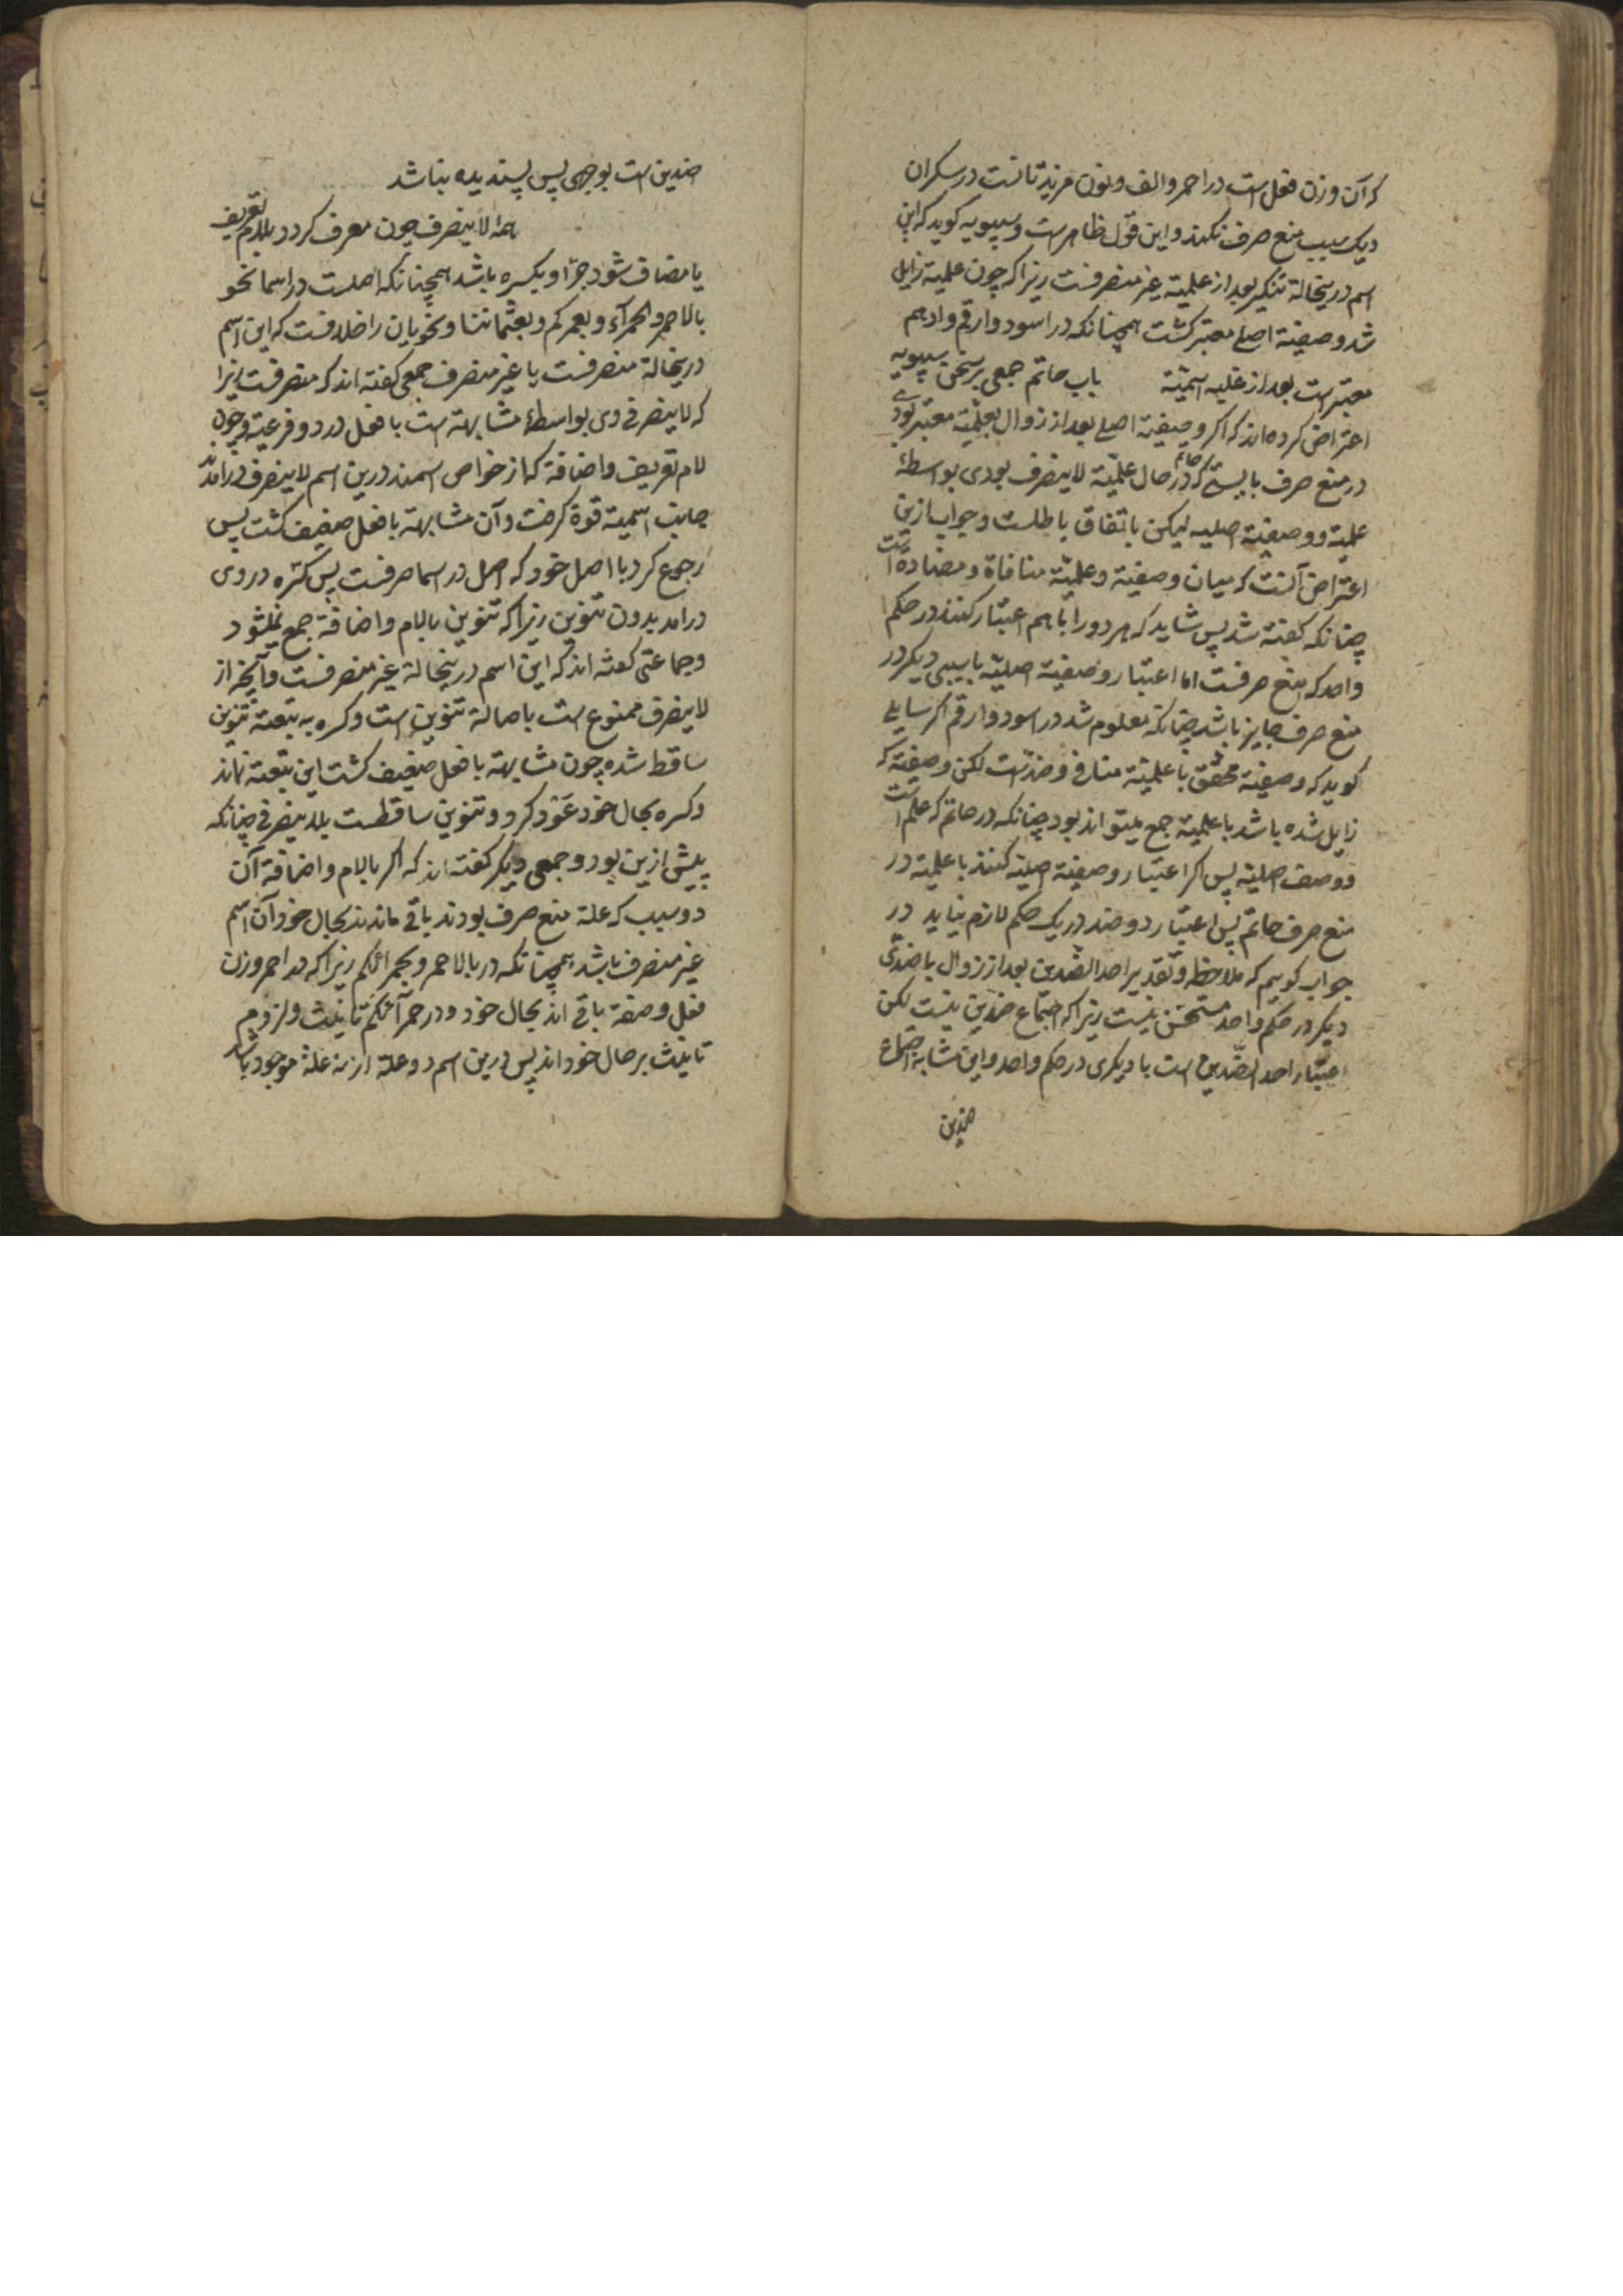 که آن وزن فعل است در احمر و الف و نون مزیدتانست در سکران
و یک سبب منع صرف نکند و این قول ظاهرست و سیبویه کوید که این
اسم درینحالة تنکیر بعد از علمیة غیر منصرفست زیرا که چون علمیة زایل
شد وصفیة اصلی معتبر کشت همچنانکه در اسود و ارقم و ادهم
معتبرست بعد از غلبه اسمیّة باب حاتم جمعی بر سخن سیبویه
اعتراض کرده‌اند که اگر وصفیة اصلی بعد از زوال بعلمیّة معتبر بودی
در منع صرف بایستی که حاتم در حال علمیّة لاینصرف بودی بواسطهٔ
علمیة و وصفیة اصلیه لیکن باتفاق باطلست و جواب ازین
اعتراض آنست که میان وصفیة و علمیّة منافاة و مضاده است
چنانکه کفته شد پس شاید که هر دو را با هم اعتبار کنند در حکم
واحد که منع صرفست اما اعتبار وصفیة اصلیّة با سببی دیکر در
منع صرف جایز باشد چنانکه معلوم شد در اسود و ارقم اکر سایلی
کوید که وصفیة محقق با علمیّة منافی و ضدّست لکن وصفیة که
زایل شده باشد با علمیة جمع میتواند بود چنانکه در حاتم که علم است
و وصف اصلیة پس اکر اعتبار وصفیة اصلیة کنند با علمیة در
منع صرف حاتم پس اعتبار دو ضد در یک حکم لازم نیاید در
جواب کوییم که ملاحظه و تقدیر احد الضّدین بعد از زوال با ضدّی
دیکر در حکم واحد مستحسن نیست زیرا که اجتماع ضدّین نیست لکن
اعتبار احد الضّدین است با دیکری در حکم واحد و این مشابه اجتماع
ضدین
ضدین است بوجهی پس پسندیده نباشد
لاینصرف چون معرف کردد بلام تعریف
یا مضاف شود جرّ او بکسره باشد همچنانکه اصلست در اسما نحو
بالاحمر و الحمرآء و بعمرکم و بعثماننا و نحویان را خلافست که این اسم
درینحالة منصرفست یا غیر منصرف جمعی کفته اند که منصرفست زیرا
که لاینصرفی وی بواسطهٔ مشابهة است با فعل در دو فرعیة و چون
لام تعریف و اضافة که از خواص اسمند درین اسم لاینصرف درامدند
جانب اسمیة قوة کرفت و آن مشابهة با فعل ضعیف کشت پس
رجوع کرد با اصل خود که اصل در اسما صرفست پس کسره در وی
درامد بدون تنوین زیرا که تنوین بالام و اضافة جمع نمیشود
و جماعتی کفته اند که این اسم درینحالة غیر منصرفست و آنچه از
لاینصرف ممنوع است باصالة تنوین است و کسره به تبعیة تنوین
ساقط شده چون مشابهة با فعل ضعیف کشت این تبعیة نماند
و کسره بحال خود عَوْد کرد و تنوین ساقطست بلاینصرفی چنانکه
پیش ازین بود و جمعی دیکر کفته اند که اکر بالام و اضافة آن
دو سبب که علة منع صرف بودند باقی ماندند بحال خود آن اسم
غیر منصرف باشد همچنانکه در بالاحمر و بحمرائکم زیرا که در احمر وزن
فعل و صفة باقی اند بحال خود و در حمرآئکم تانیث و لزوم
تانیث بر حال خود اند پس درین اسم دو علة از نه علة موجود باشد